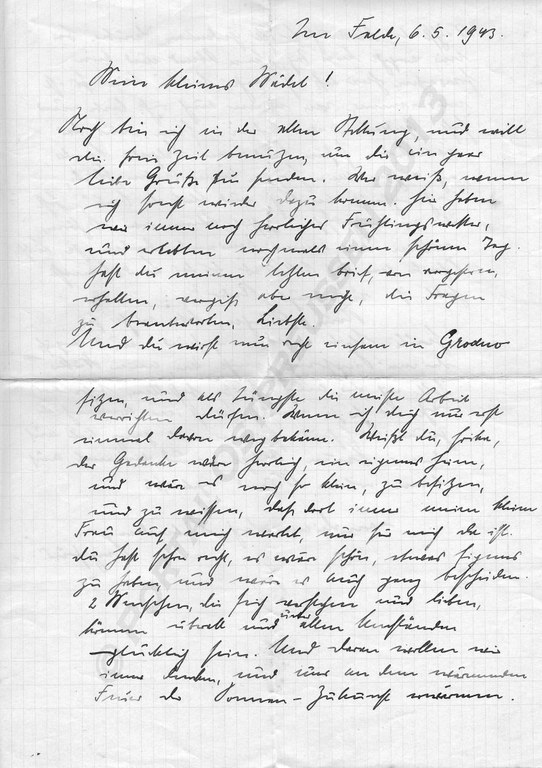 Im Felde, 6.5.1943.
Mein kleines Mädel!
Noch bin ich in der alten Stellung, und will
die freie Zeit benutzen, um dir ein paar
liebe Grüße zu senden. Wer weiß, wann
ich sonst wieder dazu komme. Hier haben
wir immer noch herrliches Frühlingswetter,
und erlebten nochmals einen schönen Tag.
Hast du meinen letzten Brief, von vorgestern,
erhalten, vergiß aber nicht, die Fragen
zu beantworten, Liebste.
Und du wirst nun recht einsam in Grodno
sitzen, und als Jüngste die meiste Arbeit
verrichten dürfen. Wenn ich dich nur erst
einmal davon wegbekäme. Weißt du,
der Gedanke wäre herrlich, ein eigenes Heim,
und wäre es noch so klein, zu besitzen,
und zu wissen, daß dort immer meine kleine
Frau auf mich wartet, nur für mich da ist.
Du hast schon recht, es wäre schön, etwas Eigenes
zu haben und wäre es auch ganz bescheiden.
2 Menschen, die sich verstehen und lieben,
können überall und unter allen Umständen
glücklich sein. Und daran wollen wir
immer denken, und uns an dem wärmenden
Feuer der Sonnen-Zukunft erwärmen.